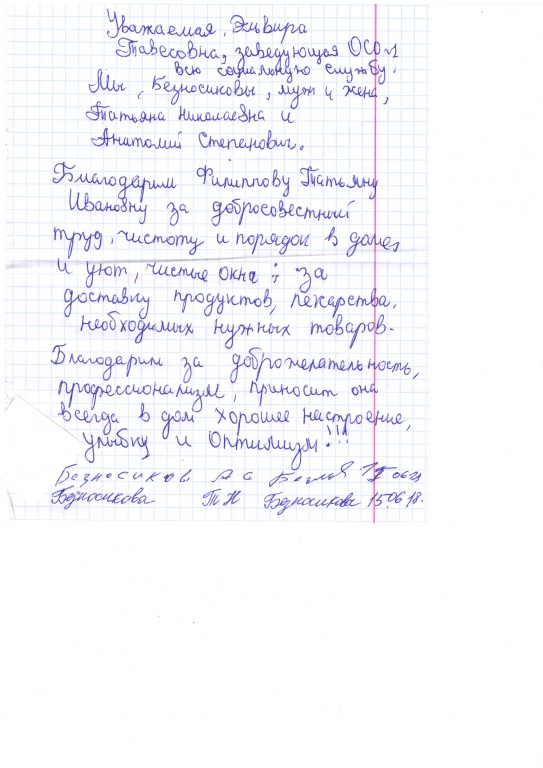 Уважаемая, Эльвира
Тавесовна, заведующая ОСО №1
всю социальную службу.
Мы, Безносиковы, муж и жена,
Татьяна Николаевна и
Анатолий Степанович.
Благодарим Филиппову Татьяну
Ивановну за добросовестный
труд, чистоту и порядок в доме,
и уют, чистые окна; за
доставку продуктов, лекарства,
необходимых нужных товаров.
Благодарим за доброжелательность,
профессионализм, приносит она
всегда в дом хорошее настроение,
улыбку и Оптимизм!!!
Безносиков А С
Безносикова Т Н Безносикова 15.06.18.